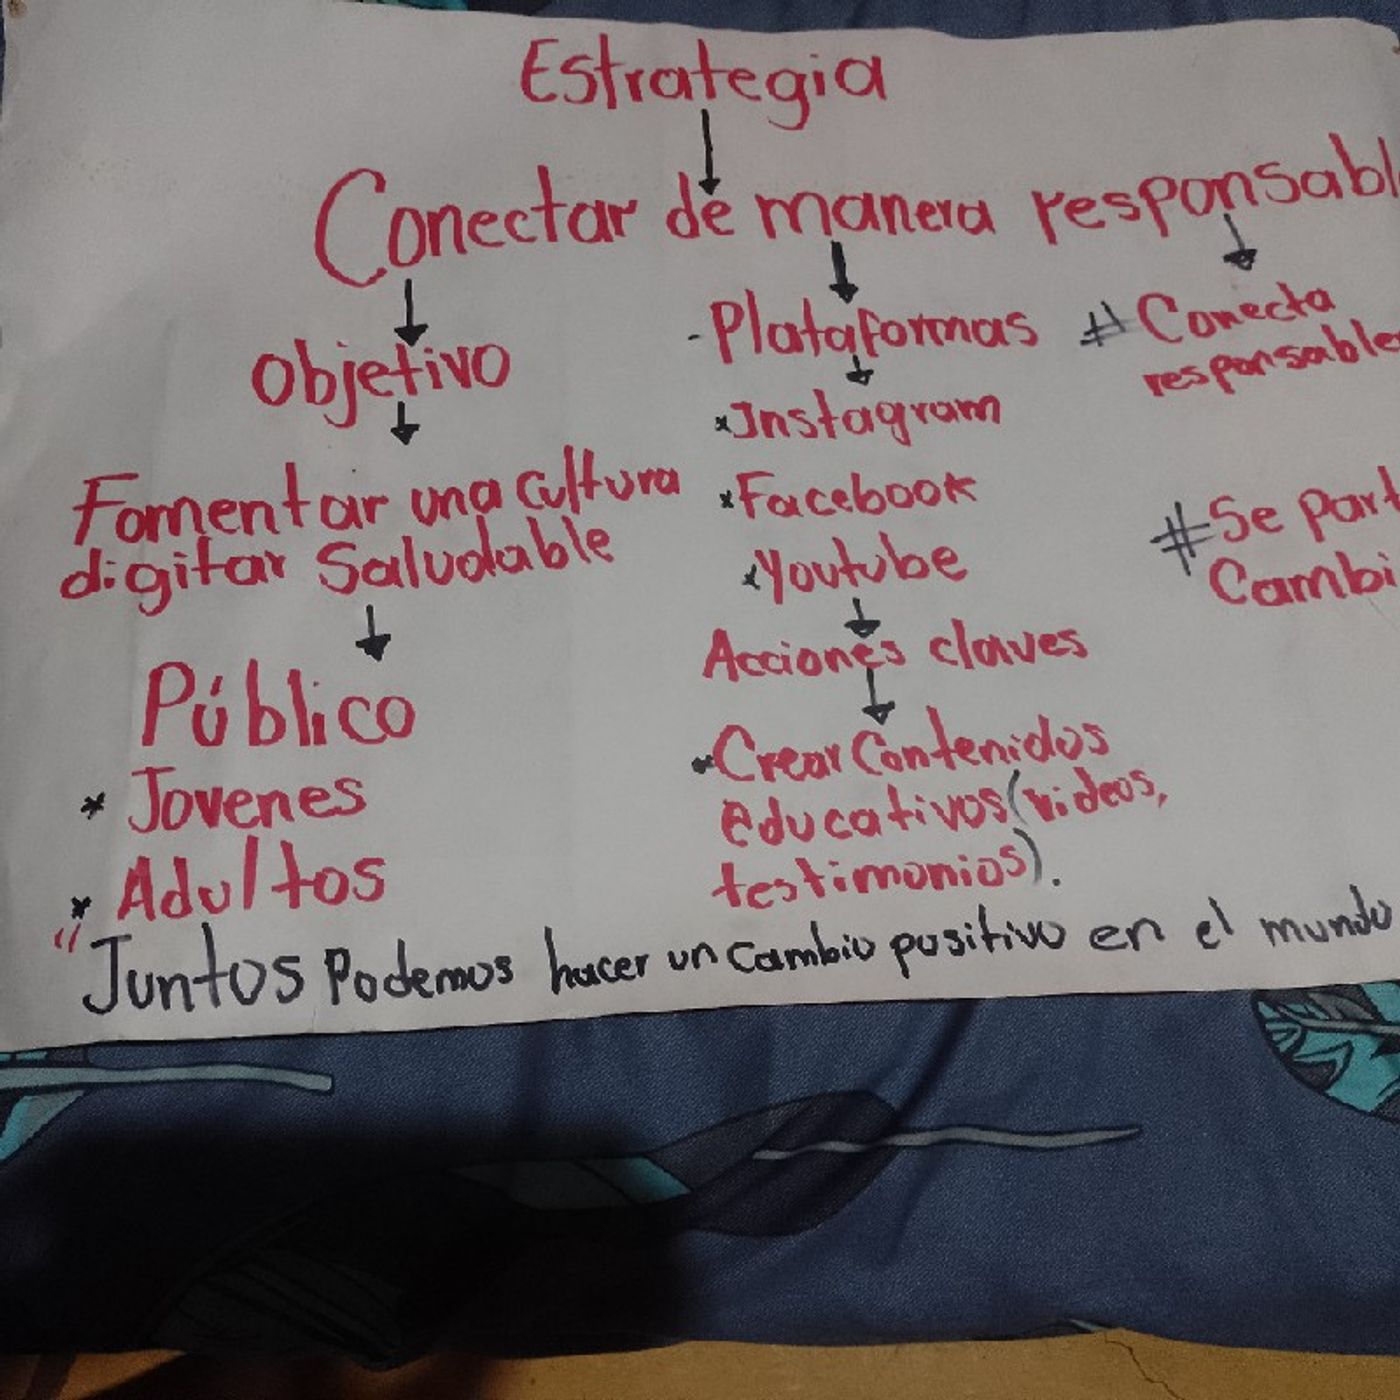 Estrategia
Conectar de manera responsable
Objetivo
Fomentar una cultura
digitar Saludable
Público
* Jovenes
* Adultos
- Plataformas
* Instagram
* Facebook
* Youtube
Acciones claves
* Crear Contenidos
educativos (videos,
testimonios).
# Conecta
responsable
# Se part
Cambi
" Juntos Podemos hacer un cambio positivo en el mundo